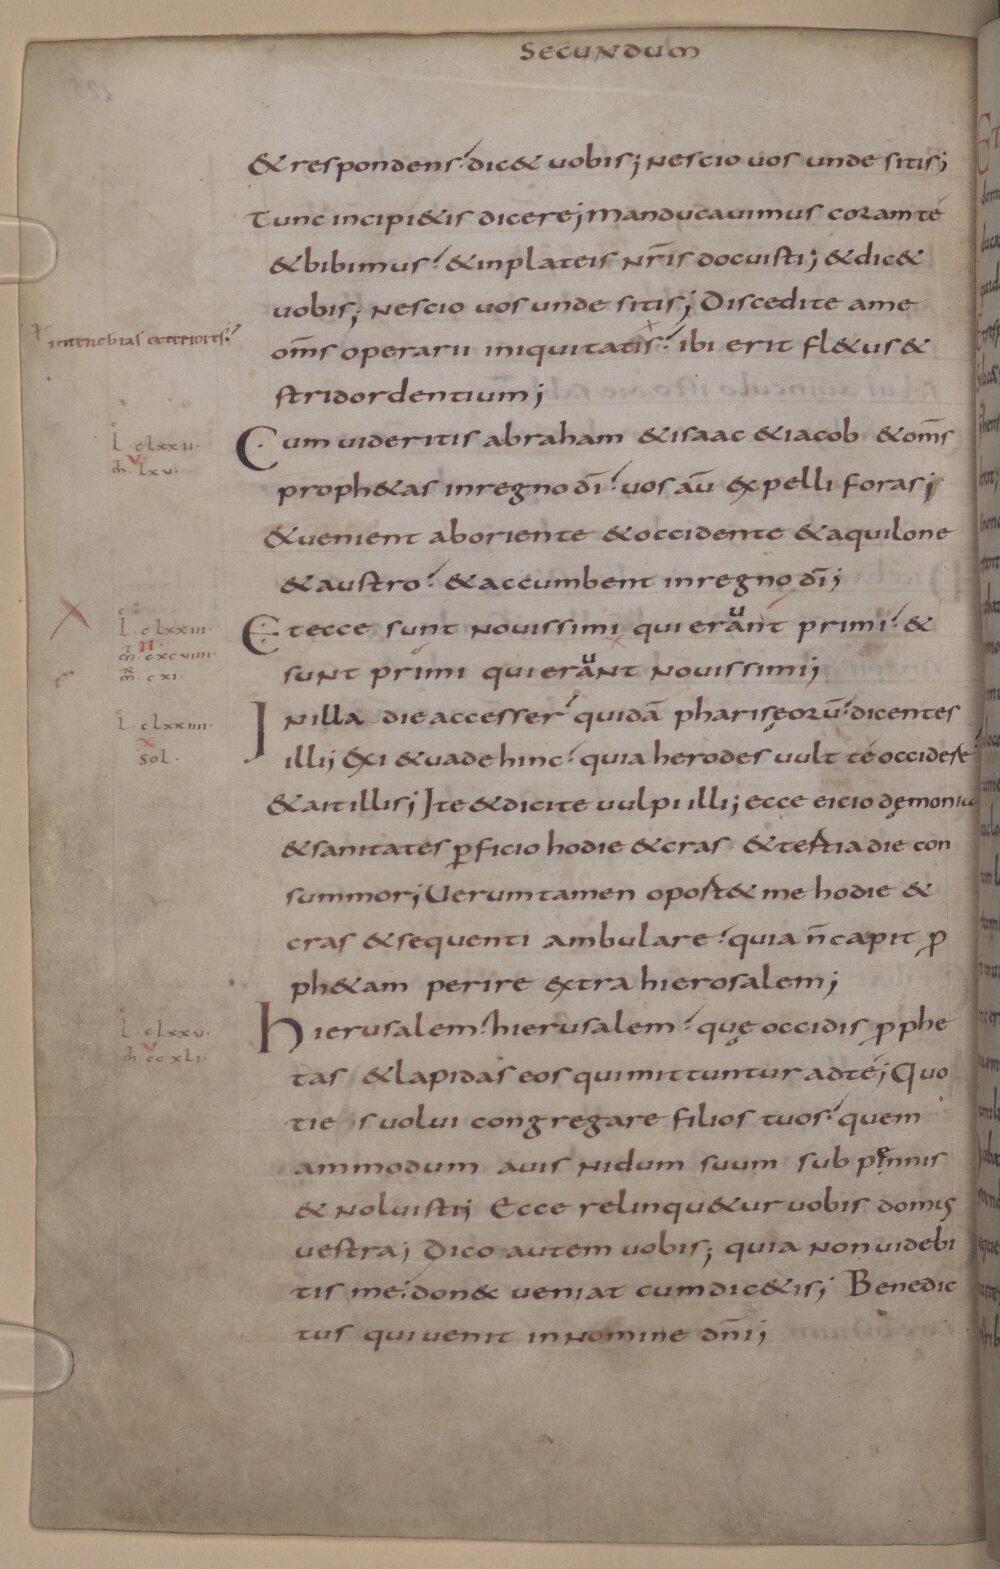 SECUNDUM
& respondens. dic& uobis; Nescio uos unde sitis;
Tunc incipi&is dicere; Manducauimus coram te
& bibimus. & in plateis nr̄is docuisti; & dic&
uobis; Nescio uos unde sitis; Discedite a me
om̄s operarii iniquitatis. ibi erit fl&us &
in tenebras exteriores.
stridor dentium;
Cum uideritis abraham & isaac & iacob & om̄s
L clxxii.
m̄. lxv.
proph&as in regno dī. uos aū expelli foras;
& uenient ab oriente & occidente & aquilone
& austro. & accumbent in regno dī;
Et ecce sunt nouissimi qui erant primi. &
L clxxiii.
m̄. cxcviiii.
m̄. cxi.
sunt primi qui erant nouissimi;
In illa die accesser quidā phariseorū. dicentes
L. clxxiiii.
illi; Exi & uade hinc. quia herodes uult te occidere
sol.
& ait illis; Ite & dicite uulpi illi; ecce eicio dęmonia
& sanitates p̄ficio hodie & cras & tertia die con
summor; Uerumtamen oport& me hodie &
cras & sequenti ambulare. quia n̄ capit p̄
ph&am perire extra hierosalem;
Hierusalem. hierusalem. quę occidis p̄phe
L clxxv.
m̄. ccxli.
tas & lapidas eos qui mittuntur ad te; Quo
tie s uolui congregare filios tuos. quem
ammodum auis nidum suum sub pinnis
& noluisti; Ecce relinqu&ur uobis domus
uestra; Dico autem uobis; quia non uidebi
tis me. donec ueniat cum dic&is; Benedic
tus qui uenit in nomine dn̄i;